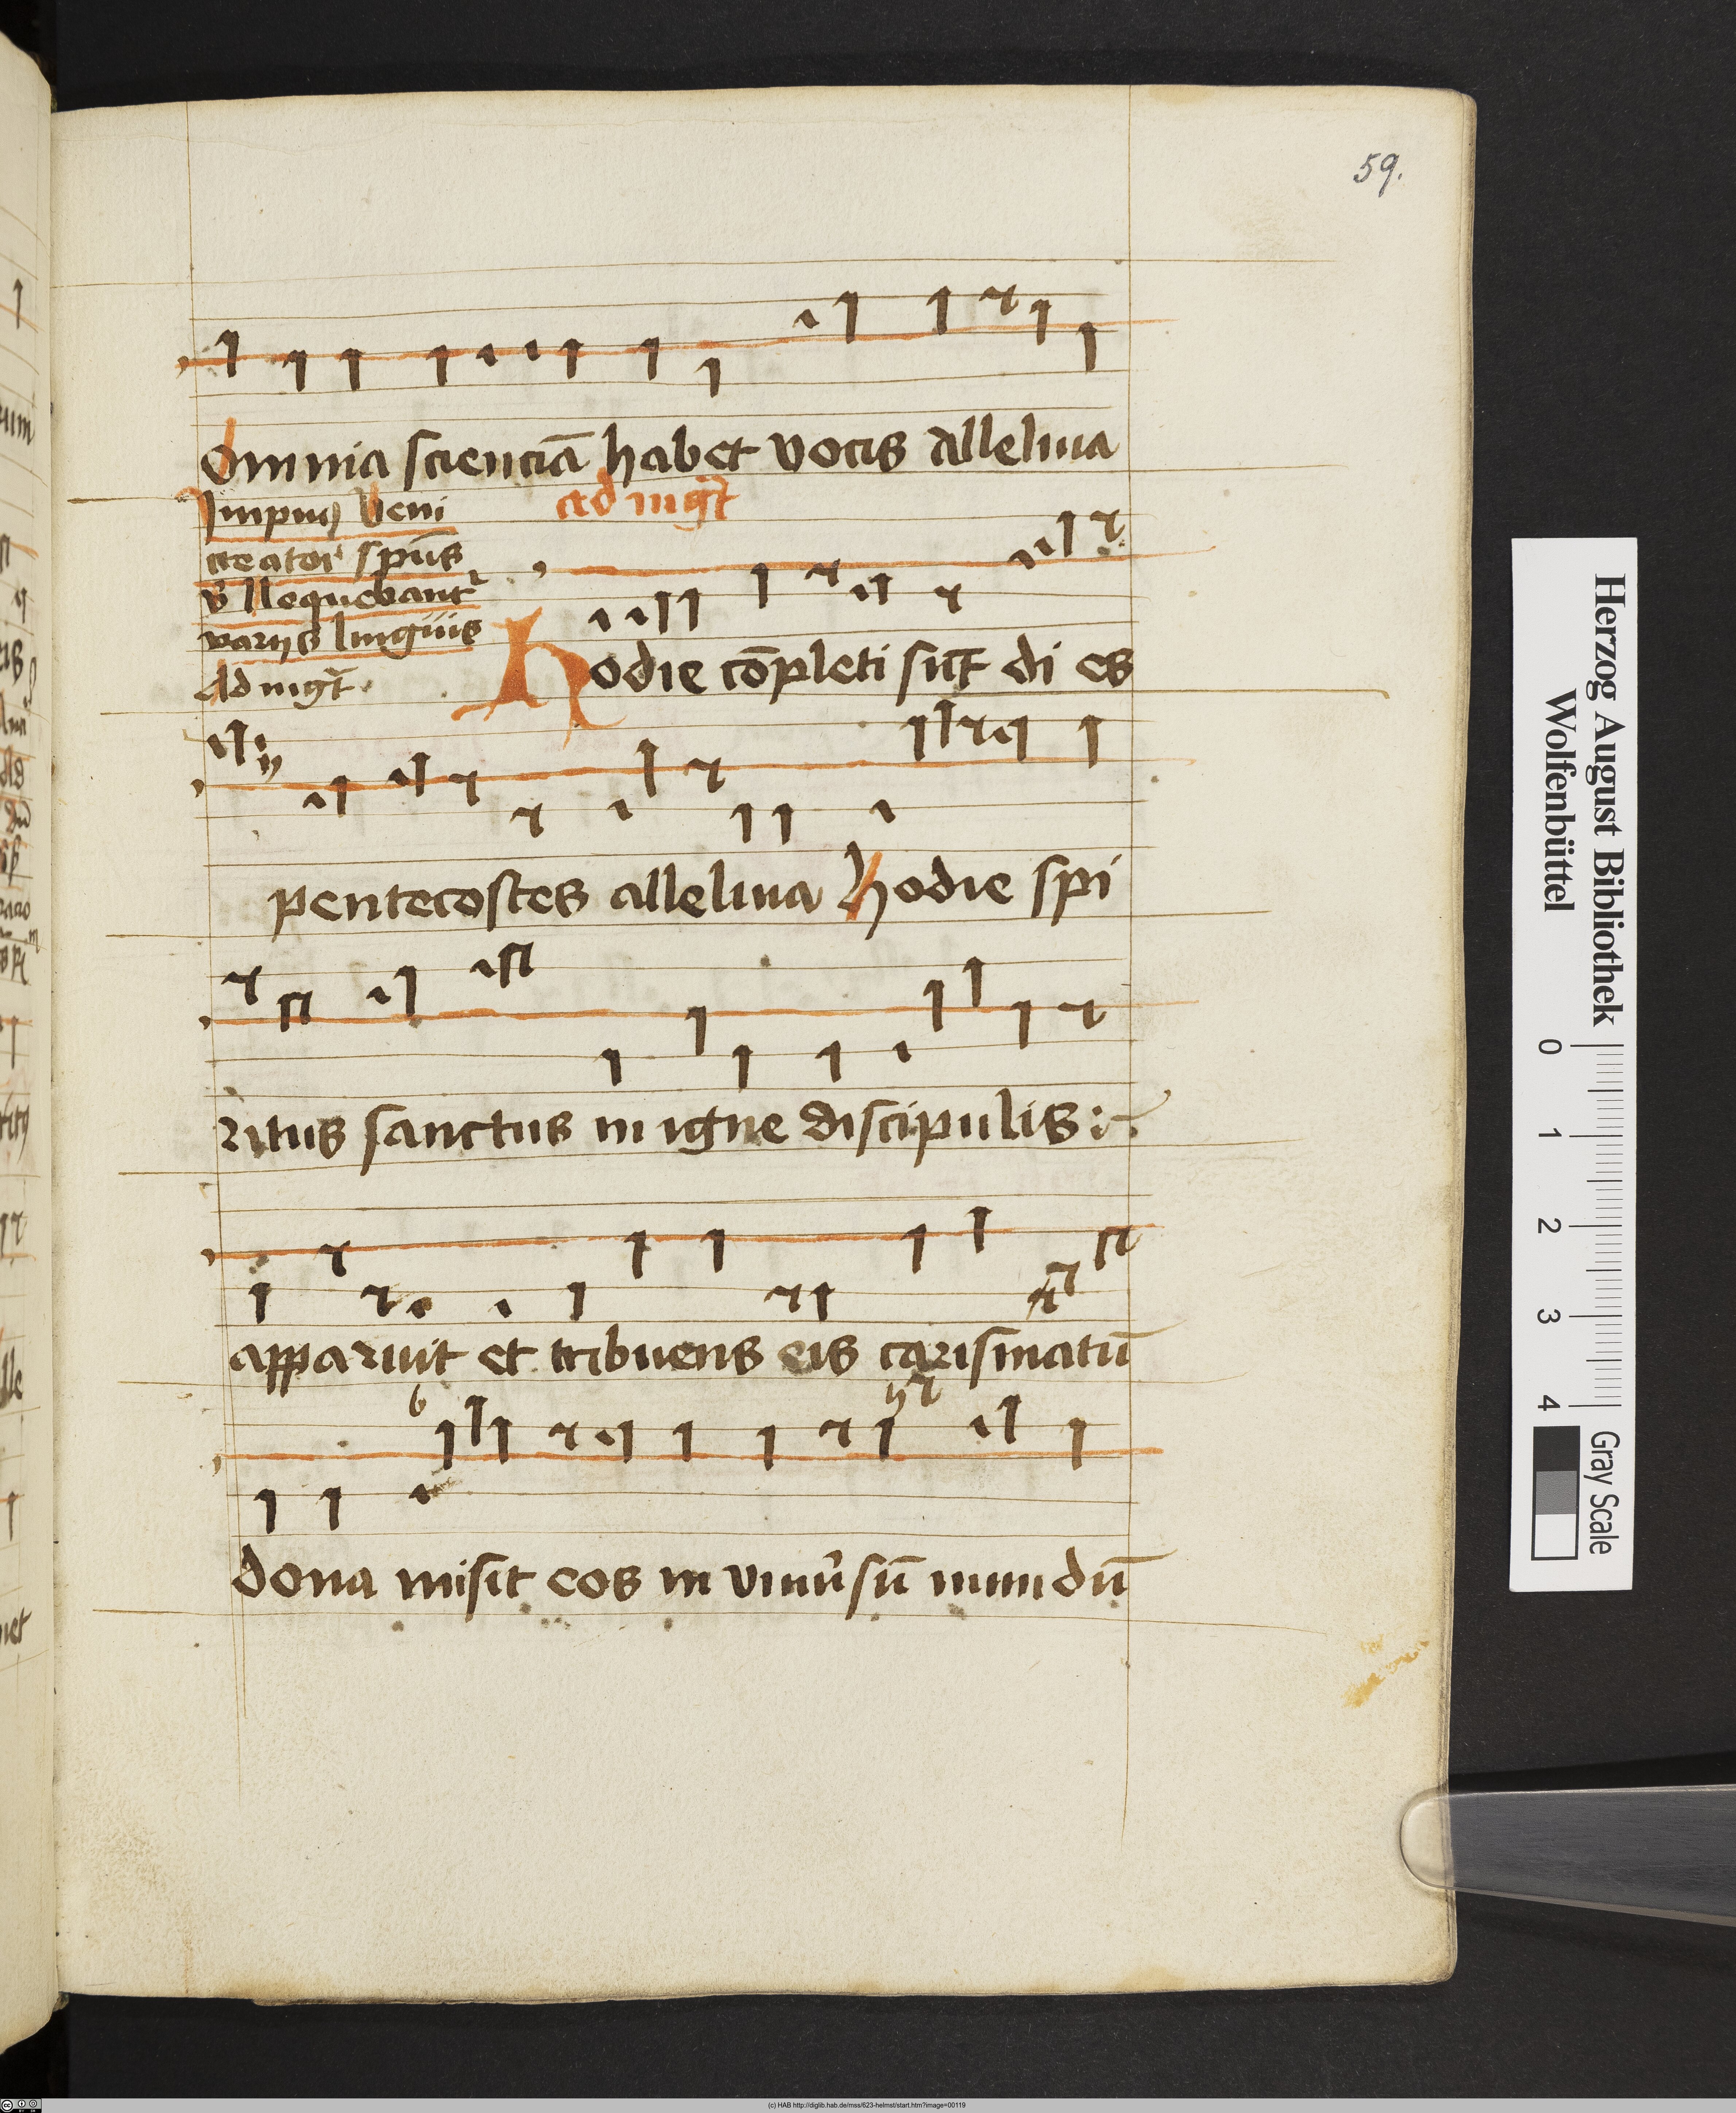 59.
omnia scienciā habet vocis alleluia
ad mgt̄
Impnꝫ Veni
creator spūs
lloquebant᷑
varijs linguis
Ad mgt̄.
Hodie cōpleti sūt di es
pentecostes alleluia hodie spi
ritus sanctus in igne discipulis :
apparuit et tribuens eis carismatū
dona misit eos in vniūsū mundū
Herzog August Bibliothek
Wolfenbüttel
0 1 2 3 4
Gray Scale
(c) HAB http://diglib.hab.de/mss/623-helmst/start.htm?image=00119